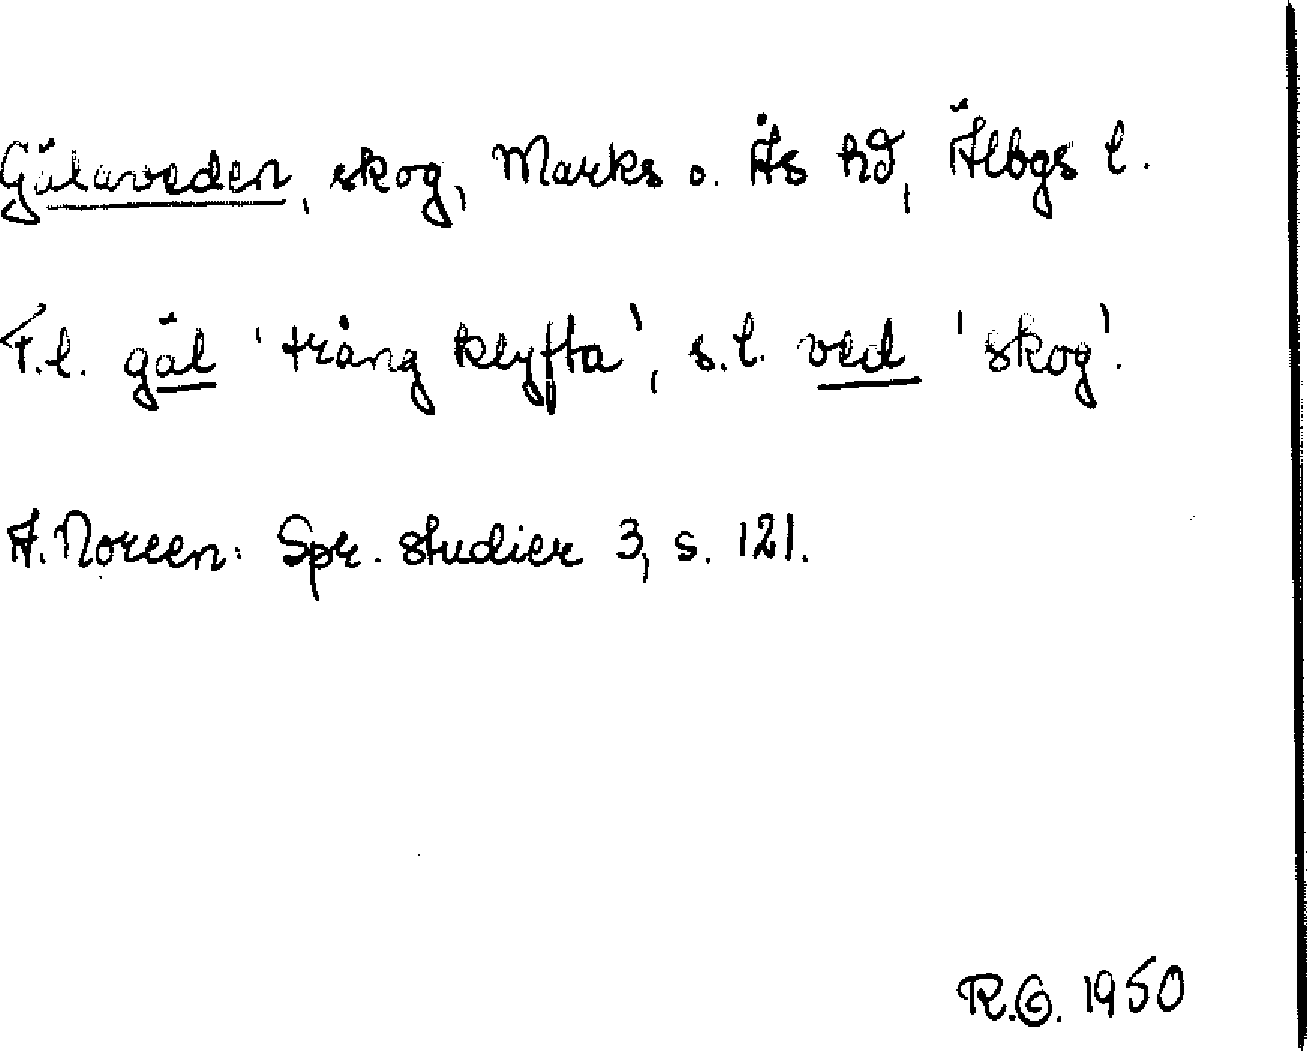 Gälaveden, skog, Marks o. Ås hd, Älbgs l.
F.l. gäl 'trång klyfta', s.l. ved 'skog'.
A. Noreen: Spr. studier 3, s. 121.
R.G. 1950